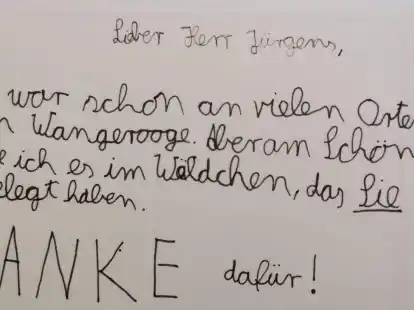 Lieber Herr Jürgens,
war schon an vielen Orte
n Wangerooge. Aber am Schön
e ich es im Wäldchen, das Sie
elegt haben.
ANKE dafür!